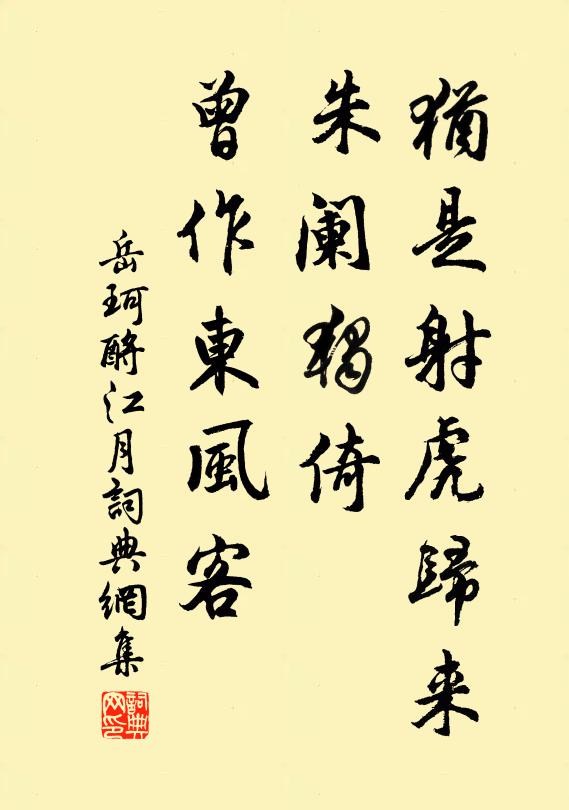 猶是射虎歸来
朱阑獨倚
曾作東風客
岳珂酹江月詞典網集
詞典网印